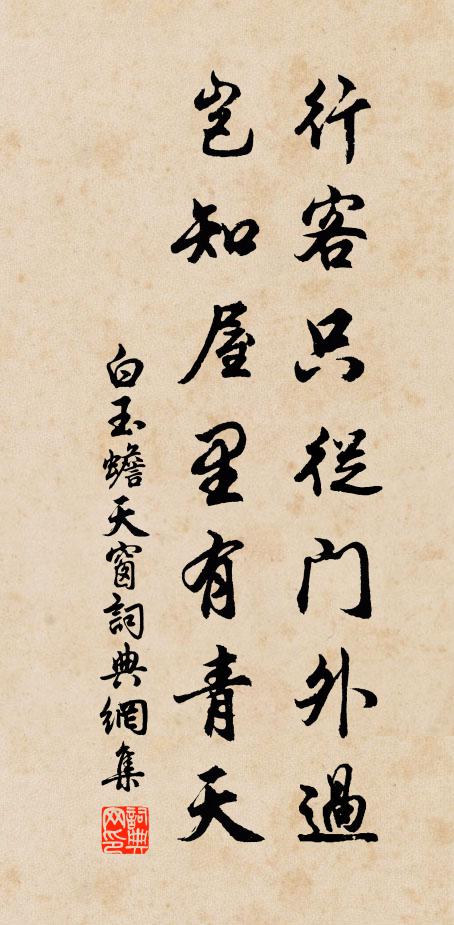 行客只從门外過
岂知屋里有青天
白玉蟾天窗詞典網集
詞典网印